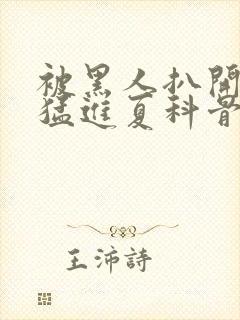 被黑人扒開
猛進夏科普
王沛詩